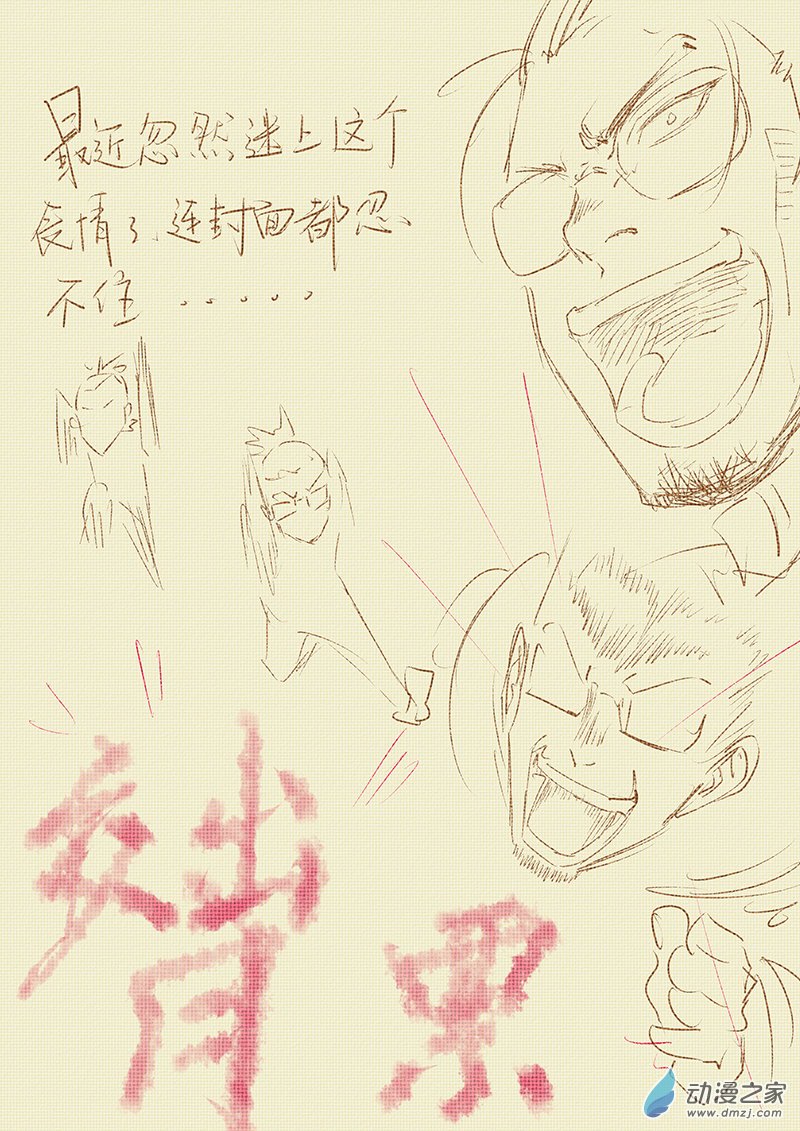 最近忽然迷上这个
表情了，连封面都忍
不住 。。。。。
动漫之家
www.dmzj.com